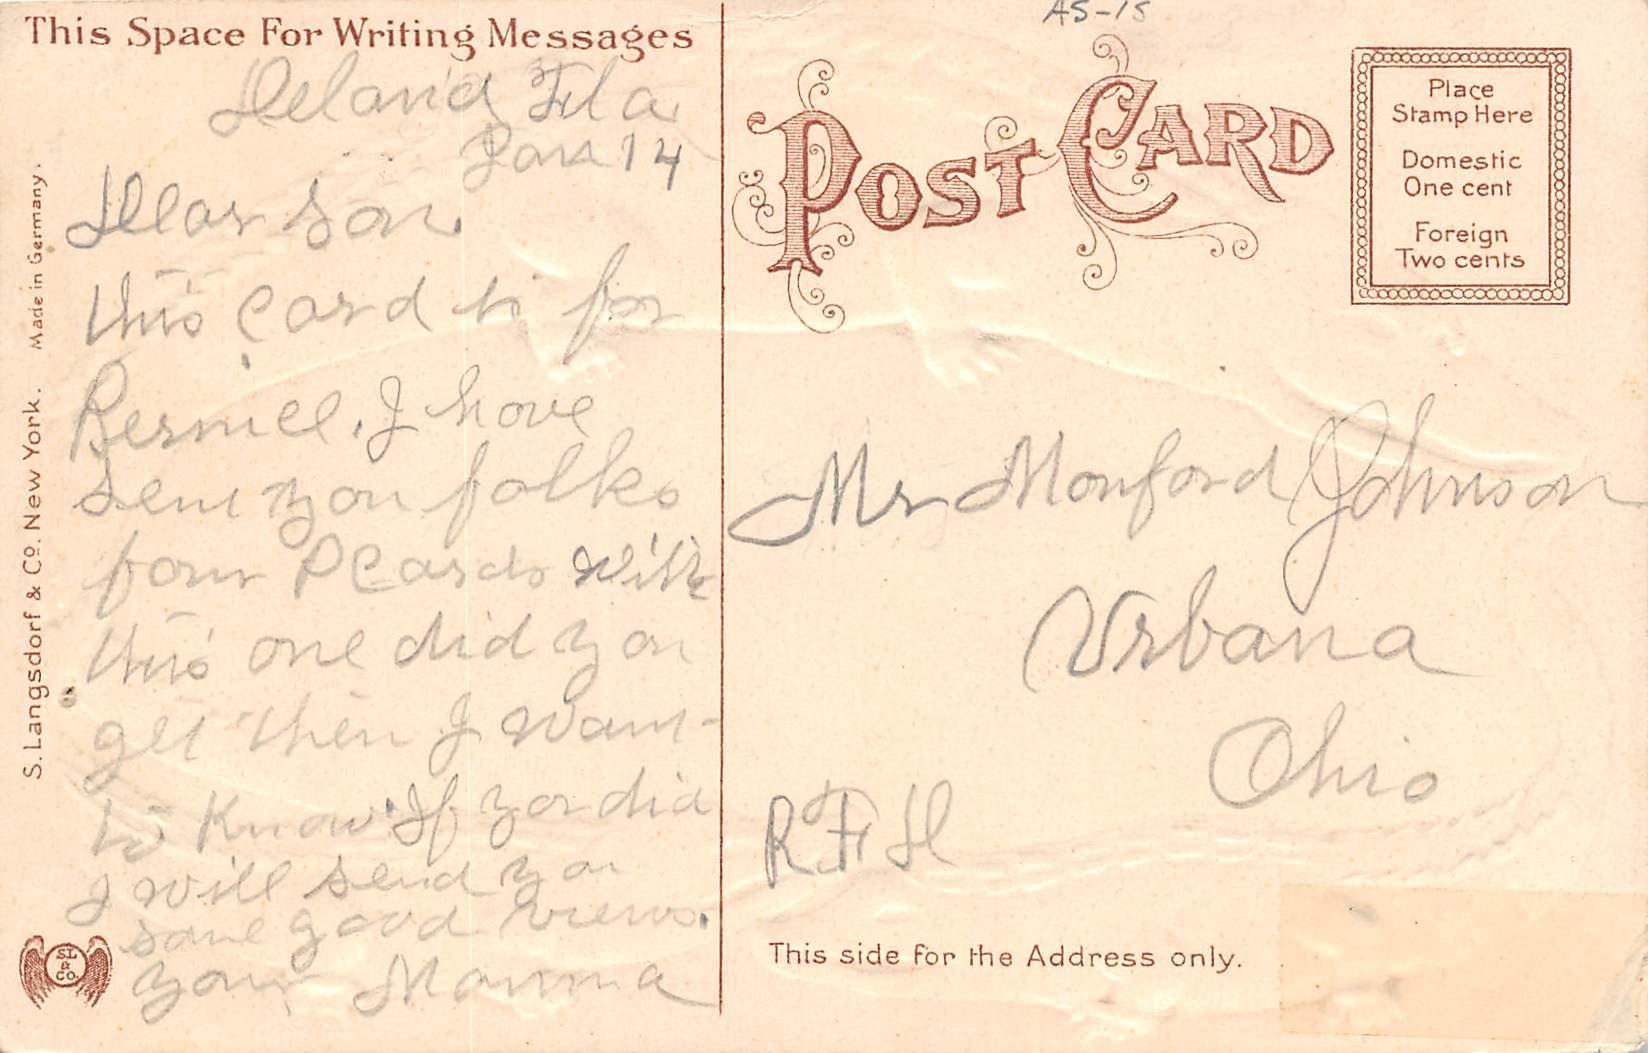 This Space For Writing Messages
Deland Fla
Jan 14
Dear Son.
this Card is for
Bernice. I have
sent you folks
four P Cards with
this one did you
get then I want
to Know. If you did
I will send you
some good views.
your Mamma
S. Langsdorf & Co. New York. Made in Germany.
SL
&
Co.
AS-15
POST CARD
Place
Stamp Here
Domestic
One cent
Foreign
Two cents
Mr Monford Johnson
Urbana
Ohio
R F D
This side for the Address only.